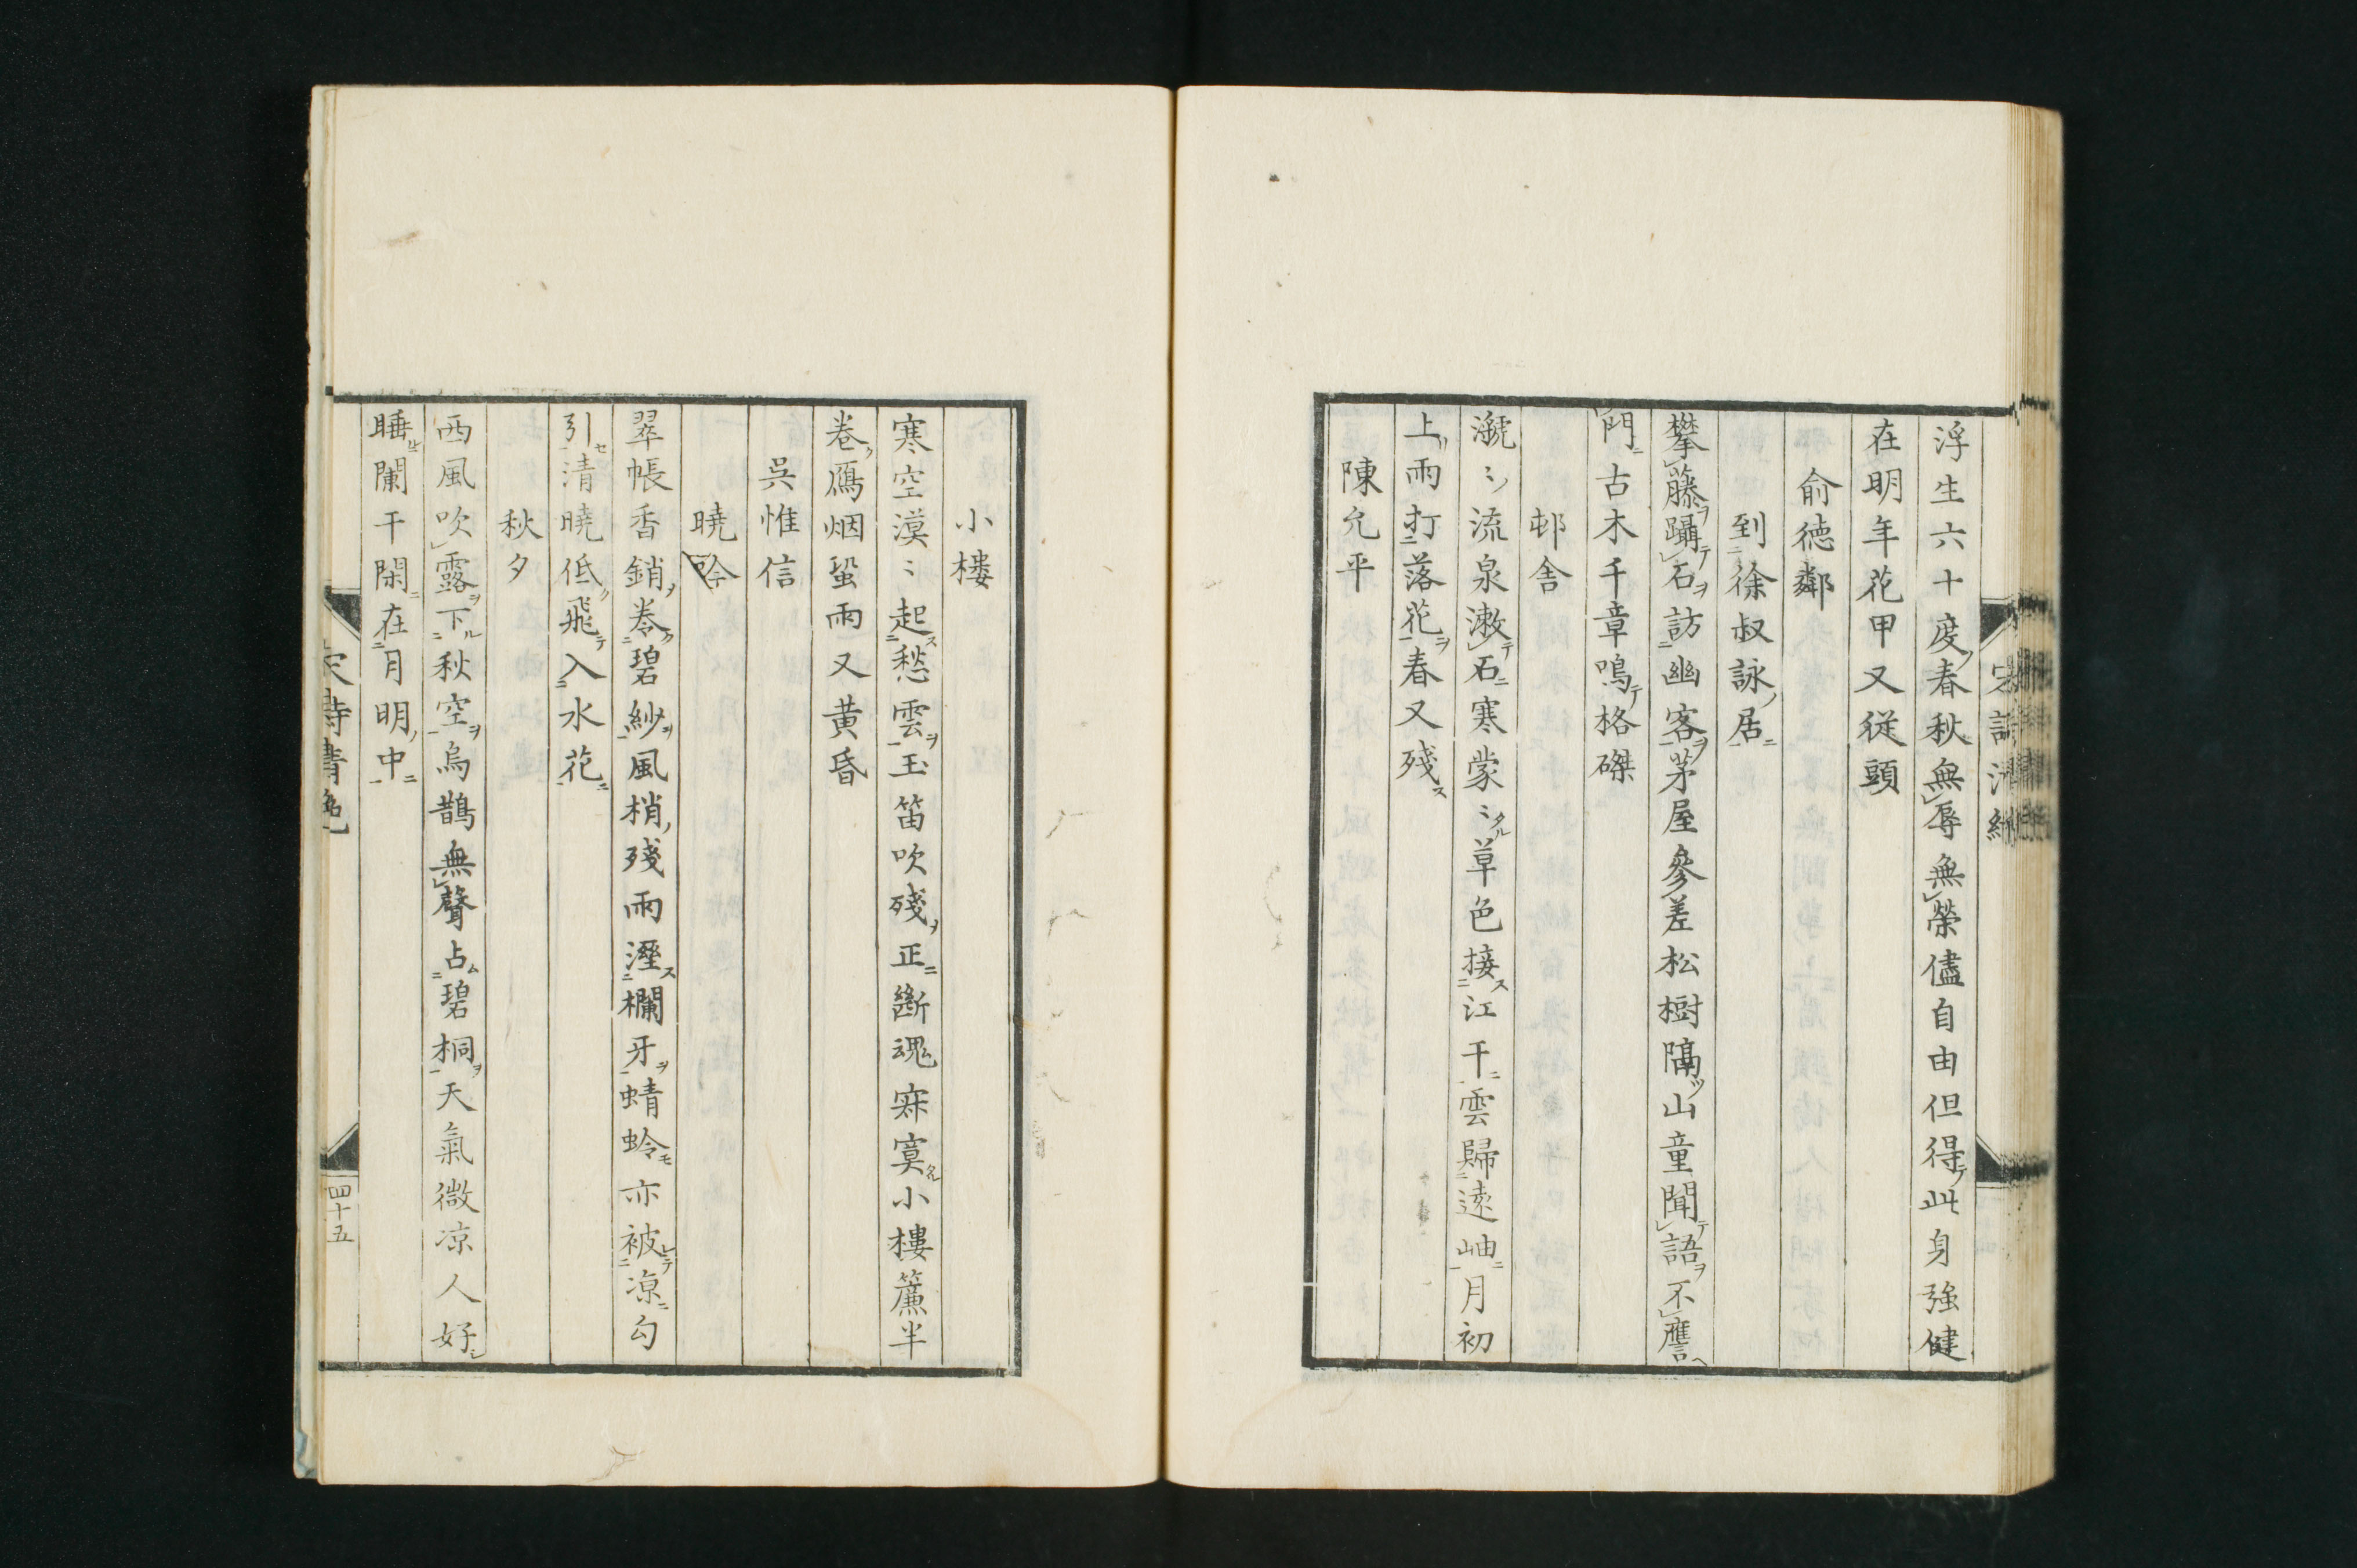 浮生六十度春秋無辱無榮儘自由但得此身強健
在明年花甲又従頭
俞徳鄰
到徐叔詠居
攀藤躡石訪幽客茅屋參差松樹隔山童聞語不譍
門古木千章鳴格磔
邨舎
㶁〻流泉漱石寒蒙〻草色接江干雲歸遠岫月初
上雨打落花春又殘
陳允平
小樓
寒空漠〻起愁雲玉笛吹殘正斷魂寂寞小樓簾半
卷鴈烟蛩雨又黄昏
吳惟信
曉吟
翠帳香銷卷碧紗風梢殘雨溼欄牙蜻蛉亦被凉勾
引清曉低飛入水花
秋夕
西風吹露下秋空烏鵲無聲占碧桐天氣微凉人好
睡闌干閑在月明中
四十五